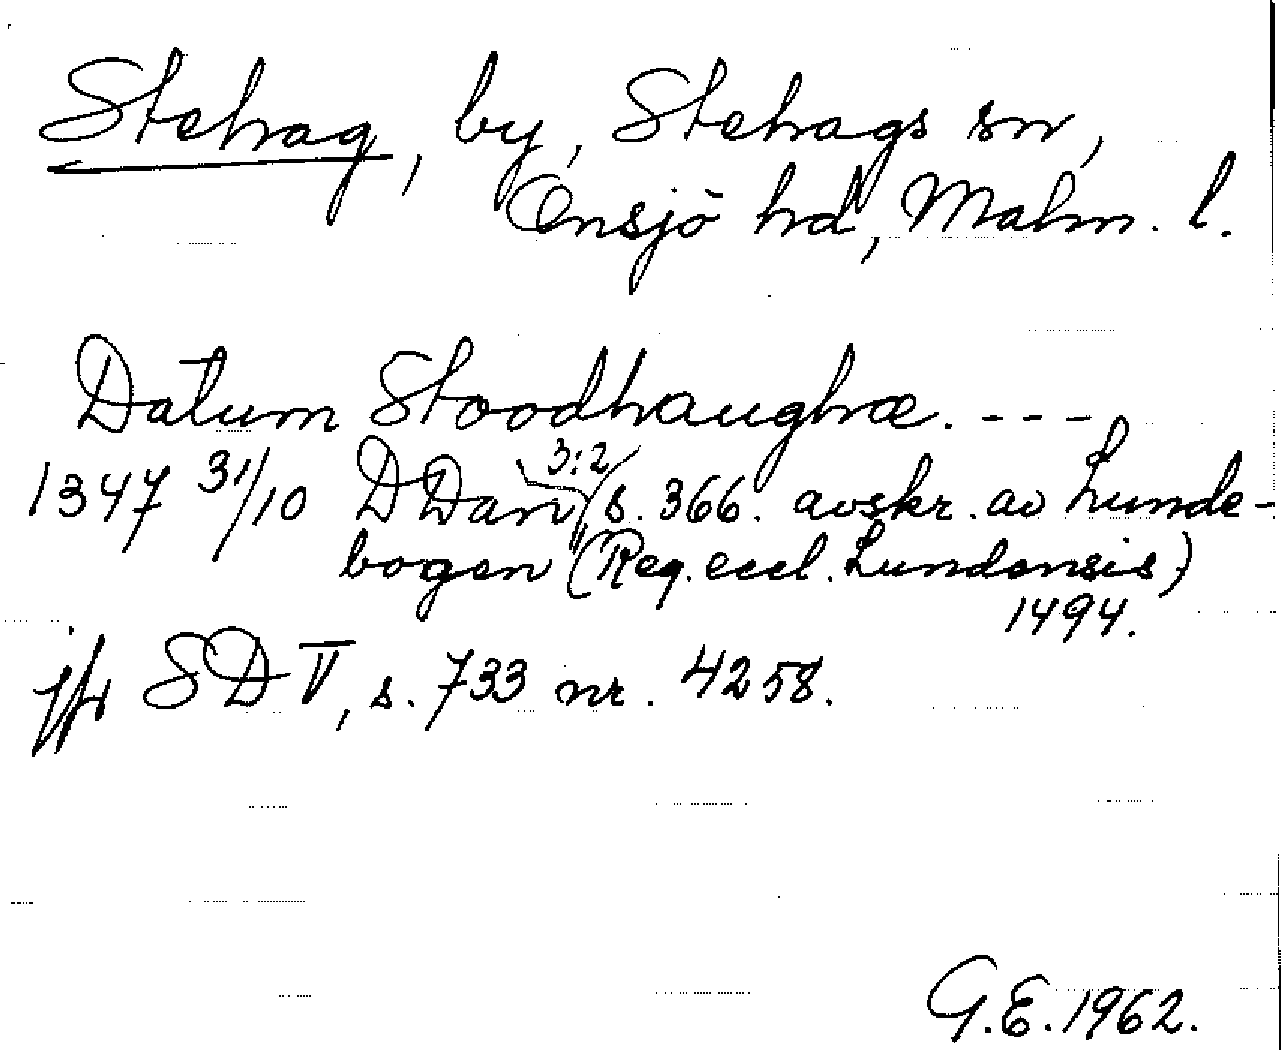 Stehag, by, Stehags sn,
Onsjö hd, Malm. l.
Datum Stoodhaughæ. ---
1347 31/10 DDan 3:2 s. 366. avskr. av Lunde-
bogen (Reg. eccl. Lundensis)
1494.
jfr SD V, s. 733 nr. 4258.
G.E. 1962.